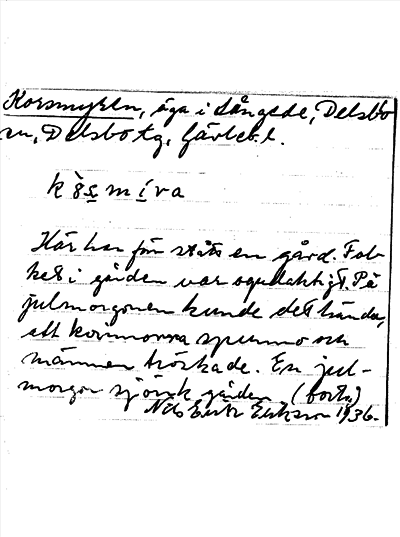 Korsmyren, äga i Långede, Delsbo
sn, Delsbo tg, Gävleb. l.
k s m í r a
Här har för
stått en gård. Fol-
ket i gården var ogudaktigt. På
julmorgonen kunde det hända,
att kvinnorna spunno och
männen tröskade. En jul-
morgon sjönk gården (bort.)
Nils Erik Eriksson 1936.